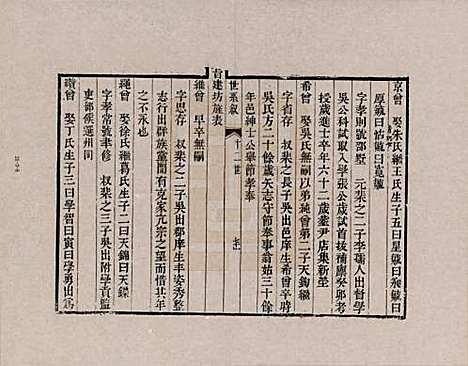 京曾 娶朱氏繼王氏生子五曰星毓曰
厚毓曰怡毓曰寬毓
字孝則號邵墅 元棐之二子李瑀人出督學
吳公科試取入學張公歲試首拔補廩癸卯考
授歲進士卒年六十二葬尹店集新塋
希曾 娶吳氏無嗣以弟純曾第二子天錫繼
字省存 叔棐之長子吳出邑庠生希曾卒時
吳氏方二十餘歲矢志守節奉事翁姑三十餘
年邑紳士公舉節孝奉
世系敘 十二世
旨建坊旌表
維曾 早卒無嗣
字思存 叔棐之二子吳出郡庠生丰姿秀整
志行出群族黨間有克家亢宗之望而惜其年
之不永也
繩曾 娶徐氏繼葛氏生子二曰天錦曰天鏍
字孝常號聿修 叔棐之三子吳出附學貢監
吏部候選州同
纘曾 娶丁氏生子三曰學智曰寅曰學勇出爲